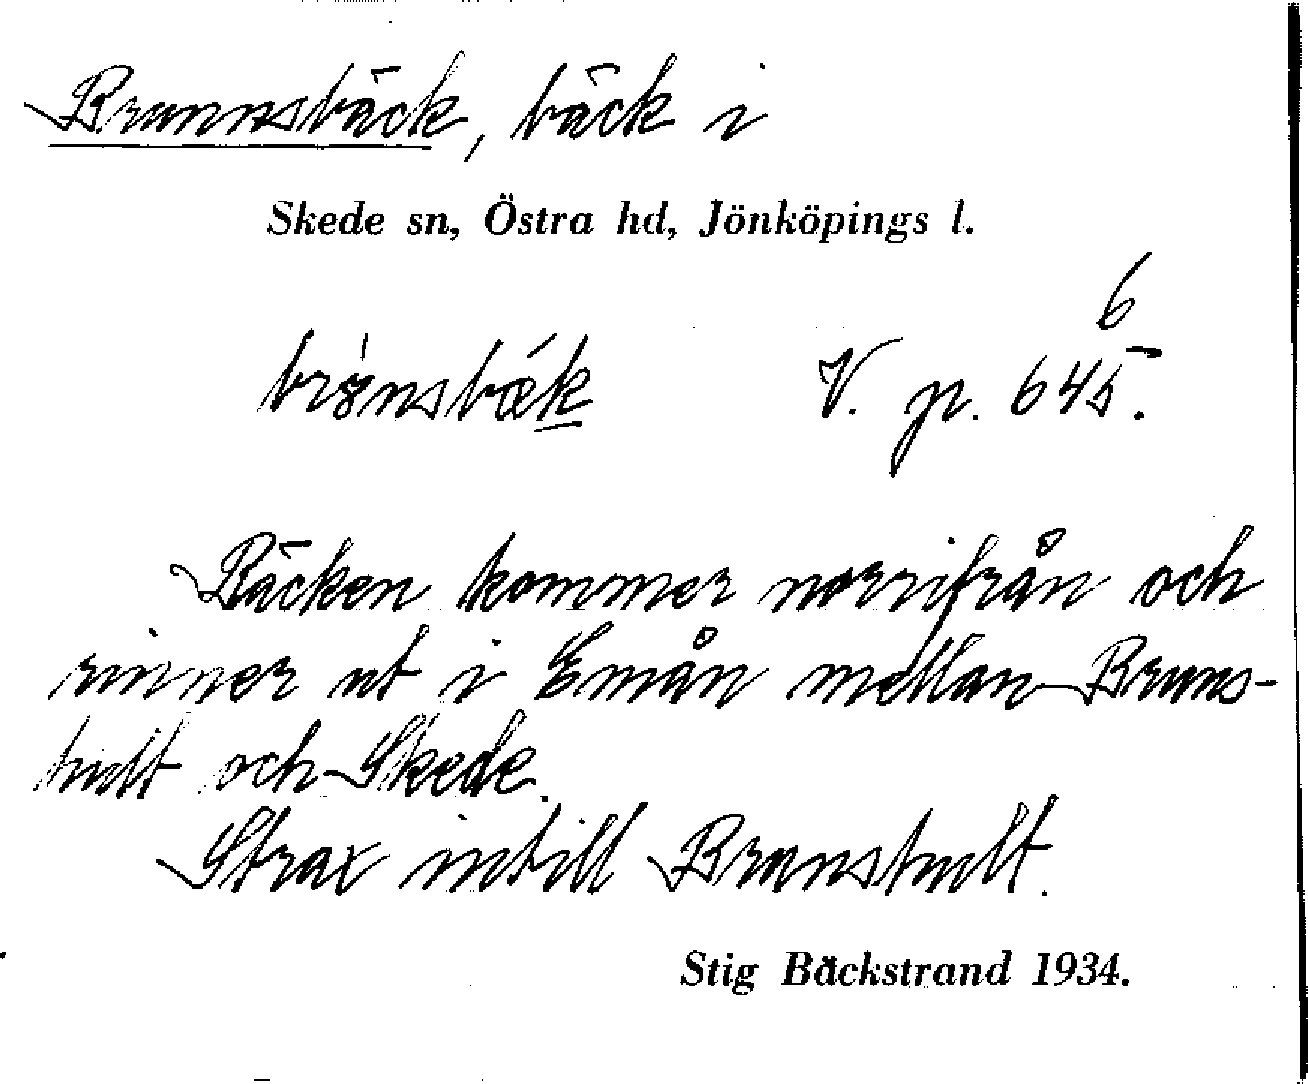 Brunnsbäck, bäck i
Skede sn, Östra hd, Jönköpings l.
6
V. p. 645.
Bäcken kommer norrifrån och
rinner ut i Emån mellan Bruns-
hult och Skede.
Strax intill Brunshult.
Stig Bäckstrand 1934.